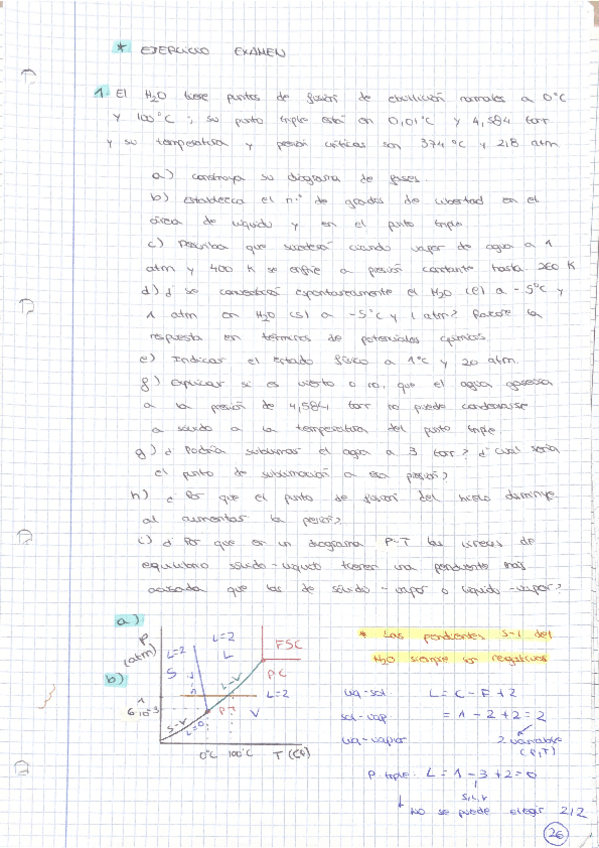 * EJERCICIO EXAMEN
1. El H2O tiene puntos de fusión de ebullición normales a 0°C
y 100°C ; su punto triple está en 0,01°C y 4,584 torr
y su temperatura y presión críticas son 374°C y 218 atm
a) construya su diagrama de fases.
b) establezca el n.º de grados de libertad en el
área de líquido y en el punto triple.
c) Describa que sucederá cuando vapor de agua a 1
atm y 400 K se enfríe a presión constante hasta 260 K
d) ¿ se convertirá espontáneamente el H2O (l) a -5°C y
1 atm en H2O (s) a -5°C y 1 atm? Razone la
respuesta en términos de potenciales químicos.
e) Indicar el estado físico a 1°C y 20 atm.
f) explicar si es cierto o no, que el agua gaseosa
a la presión de 4,584 torr no puede condensarse
a sólido a la temperatura del punto triple.
g) ¿ Podría sublimar el agua a 3 torr? ¿ Cuál sería
el punto de sublimación a esa presión?
h) ¿ Por que el punto de fusión del hielo disminuye
al aumentar la presión?
i) ¿ Por que en un diagrama P-T las líneas de
equilibrio sólido-líquido tienen una pendiente más
acusada que las de sólido-vapor o líquido-vapor?
a)
P (atm)
L=2
L=2
L
FSC
S
S-L
L-V
PC
b)
1
L=2
6·10-3
PT
V
S-V
L=0
0°C 100°C T (°C)
* Las pendientes S-L del
H2O siempre son negativas
líq-sol. L = C - F + 2
sol-vap. = 1 - 2 + 2 = 2
líq-vapor 2 variables
(P,T)
P. triple. L = 1 - 3 + 2 = 0
S, L, V
↓ no se puede elegir
26